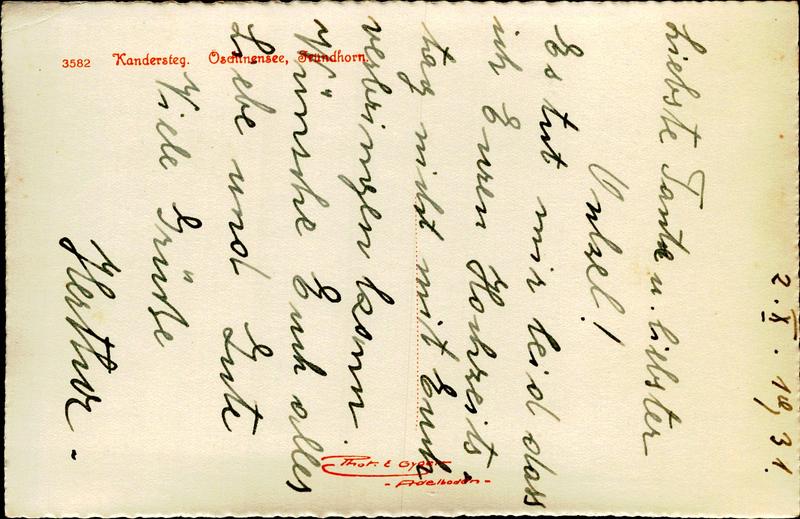 2. X. 1931.
Liebste Tante u. liebster
Onkel!
Es tut mir leid dass
ich Euren Hochzeits-
tag nicht mit Euch
verbringen kann.
Wünsche Euch alles
Liebe und Gute
Viele Grüße
Hertha.
3582 Kandersteg. Oschinensee, Fründhorn.
Phot. E. Gyger
- Adelboden -